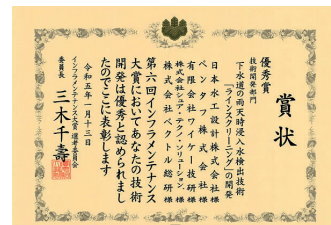 賞状
優秀賞
技術開発部門
下水道の雨天時浸入水検出技術
「ラインスクリーニング」の開発
日本水工設計株式会社様
ペンタフ株式会社様
有限会社ワイケー技研様
株式会社シュア・テクノ・ソリューション様
株式会社ベクトル総研様
第六回インフラメンテナンス
大賞においてあなたの技術
開発は優秀と認められまし
たのでここに表彰します
令和五年一月十三日
インフラメンテナンス大賞 選考委員会
委員長 三木千壽